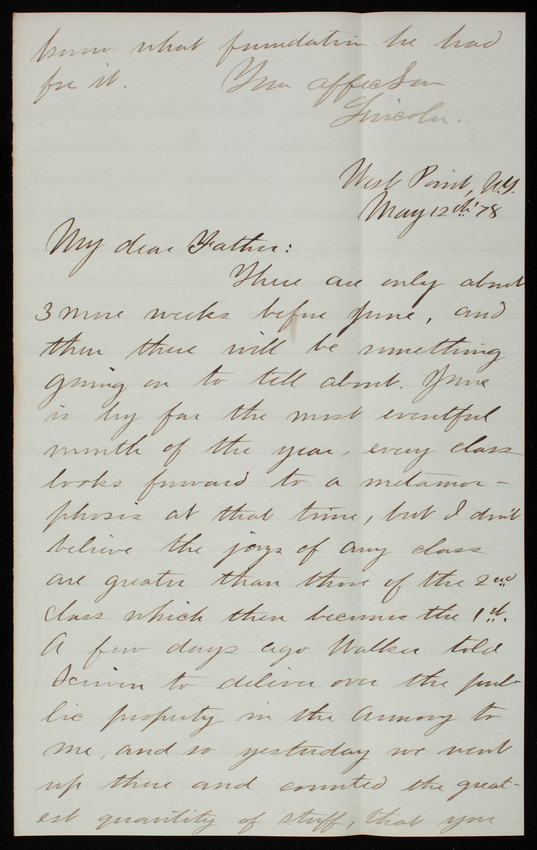 know what foundation he had
for it. Your affec Son
Lincoln.
West Point, N.Y.
May 12th '78
My dear Father:
There are only about
3 more weeks before June, and
then there will be something
going on to tell about. June
is by far the most eventful
month of the year, every class
looks forward to a metamor-
phosis at that time, but I don't
believe the joys of any class
are greater than those of the 2nd
class which then becomes the 1st.
A few days ago Walker told
Scriven to deliver over the pub-
lic property in the Armory to
me, and so yesterday we went
up there and counted the great-
est quantity of stuff, that you